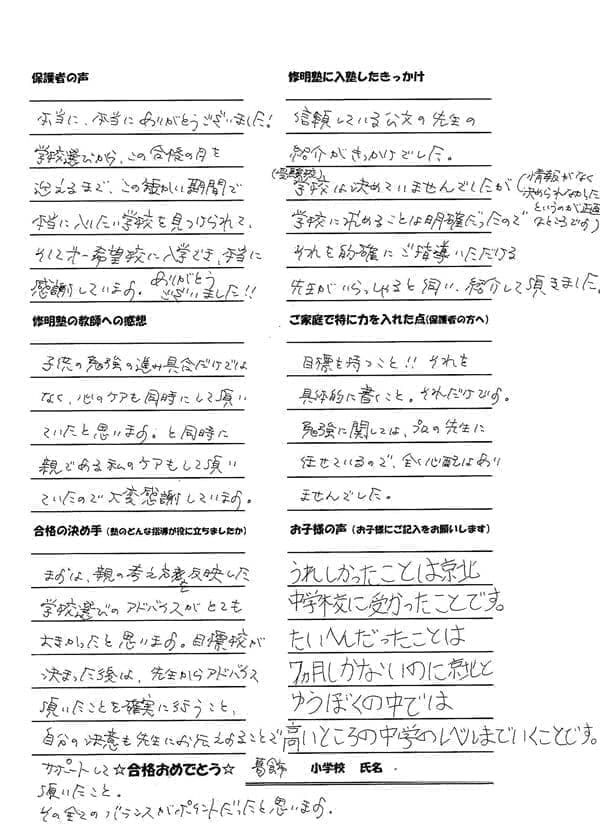 保護者の声
本当に、本当にありがとうございました!
学校選びから、この合格の日を
迎えるまで、この短かい期間で
本当に入いたい学校を見つけられて、
そして第一希望校に入学でき、本当に
感謝しています。ありがとう
ございました!!
修明塾の教師への感想
子供の勉強の進み具合だけでは
なく、心のケアも同時にして頂い
ていたと思います。と同時に
親である私のケアもして頂い
ていたので大変感謝しています。
合格の決め手(塾のどんな指導が役に立ちましたか)
まずは、親の考え方を反映した
学校選びのアドバイスがとても
大きかったと思います。目標校が
決まった後は、先生からアドバイス
頂いたことを確実に行うこと、
自分の決意も先生にお伝えすることで
サポートして
頂いたこと。
その全てのバランスがポイントだったと思います。
修明塾に入塾したきっかけ
信頼している公文の先生の
紹介がきっかけでした。
(受験校)
学校は決めていませんでしたが(情報がなく
決められなかった
というのが正直
なところです)
学校に求めることは明確だったので
それを的確にご指導いただける
先生がいらっしゃると伺い、紹介して頂きました。
ご家庭で特に力を入れた点(保護者の方へ)
目標を持つこと!!それを
具体的に書くこと。それだけです。
勉強に関しては、プロの先生に
任せているので、全く心配はあり
ませんでした。
お子様の声(お子様にご記入をお願いします)
うれしかったことは京北
中学校に受かったことです。
たいへんだったことは
7ヵ月しかないのに京北と
ゆうぼくの中では
高いところの中学のレベルまでいくことです。
☆合格おめでとう☆ 葛飾 小学校 氏名